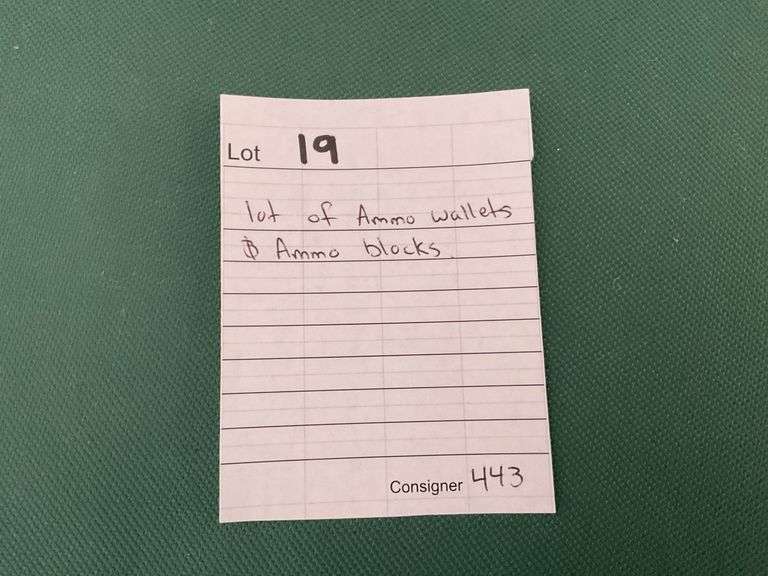 Lot 19
lot of Ammo wallets
& Ammo blocks.
Consigner 443